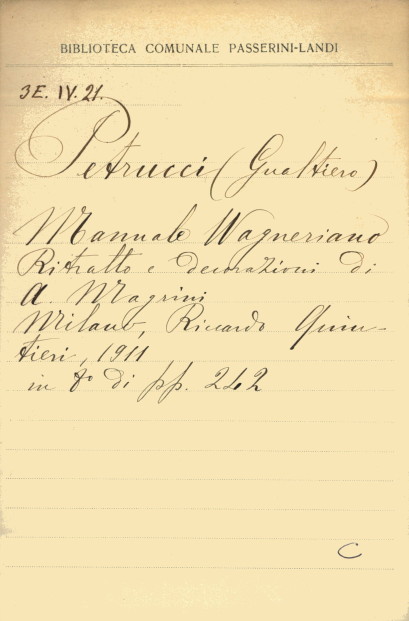 BIBLIOTECA COMUNALE PASSERINI-LANDI
3E. IV. 21.
Petrucci (Gualtiero)
Manuale Wagneriano
Ritratto e decorazioni di
A. Magrini
Milano, Riccardo Quin-
tieri, 1911
in 8º di pp. 242
C